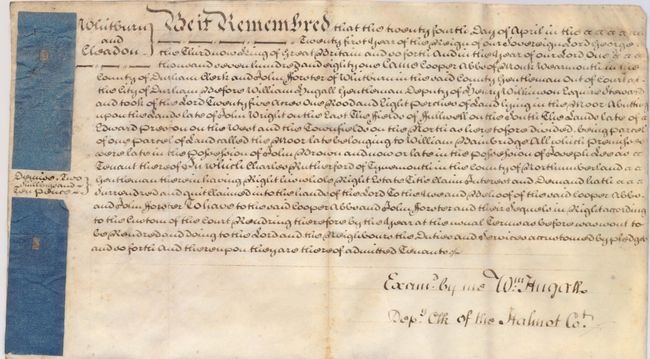 Whitburn
and
Cleadon
Be it Remembred that the twenty fourth Day of April in the
Twenty first Year of the Reign of our Sovereign Lord George
the Third now King of Great Britain and so forth And in the Year of our Lord One
thousand seven hundred and eighty one Came Cooper Abbs of Monk Wearmouth in the
County of Durham Clerk and John Forster of Whitburn in the said County Gentleman Out of Court at
the City of Durham Before William Hugall Gentleman Deputy of Henry Wilkinson Esquire Steward
and took of the Lord Twenty five Acres One Rood and Eight Perches of Land lying in the Moor Abutting
upon the Lands late of John Wright on the East The Fields of Fullwell on the South The Lands late of
Edward on the West and the Townfields on the North as heretofore divided being parcel
of one Parcel of Land called the Moor late belonging to William Bainbridge All which Premises
were late in the Possession of John Brown and now or late in the Possession of Joseph Lee as
Tenant thereof Of which Charles Rutherford of Tynemouth in the County of Northumberland
Gentleman therein having Right the whole Right Estate Title Claim Interest and Demand hath
Surrendred and quit claimed into the hands of the Lord To the Use and Behoof of the said Cooper Abbs
and John Forster To have to the said Cooper Abbs and John Forster and their Sequels in Right according
to the Custom of the Court Rendring therefore by the Year at the usual Terms as before was wont to
be Rendred and doing to the Lord and the Neighbours the Duties and Services accustomed by pledges
and so forth And thereupon they are thereof admitted Tenants
Demise Two
Shillings and
Ten Pence
Examd. by me Wm. Hugall
Depy. Clk of the Halmot Ct.